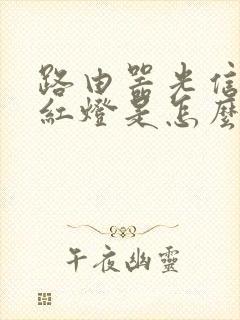 路由器光信
紅燈是怎麼
午夜幽靈